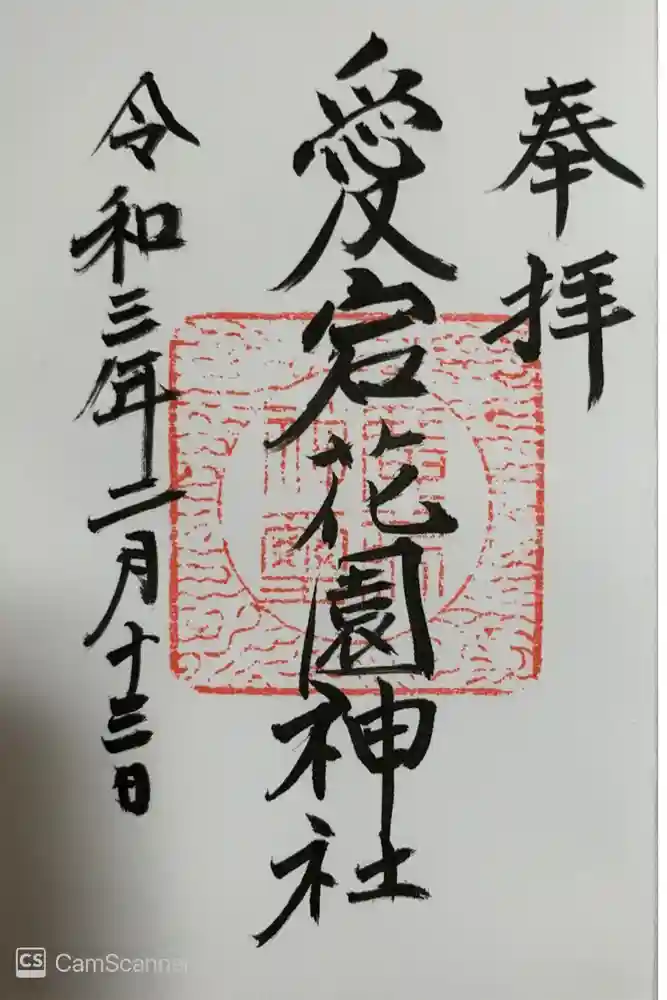 奉拝
愛宕花園神社
令和三年二月十三日
CS CamScanner